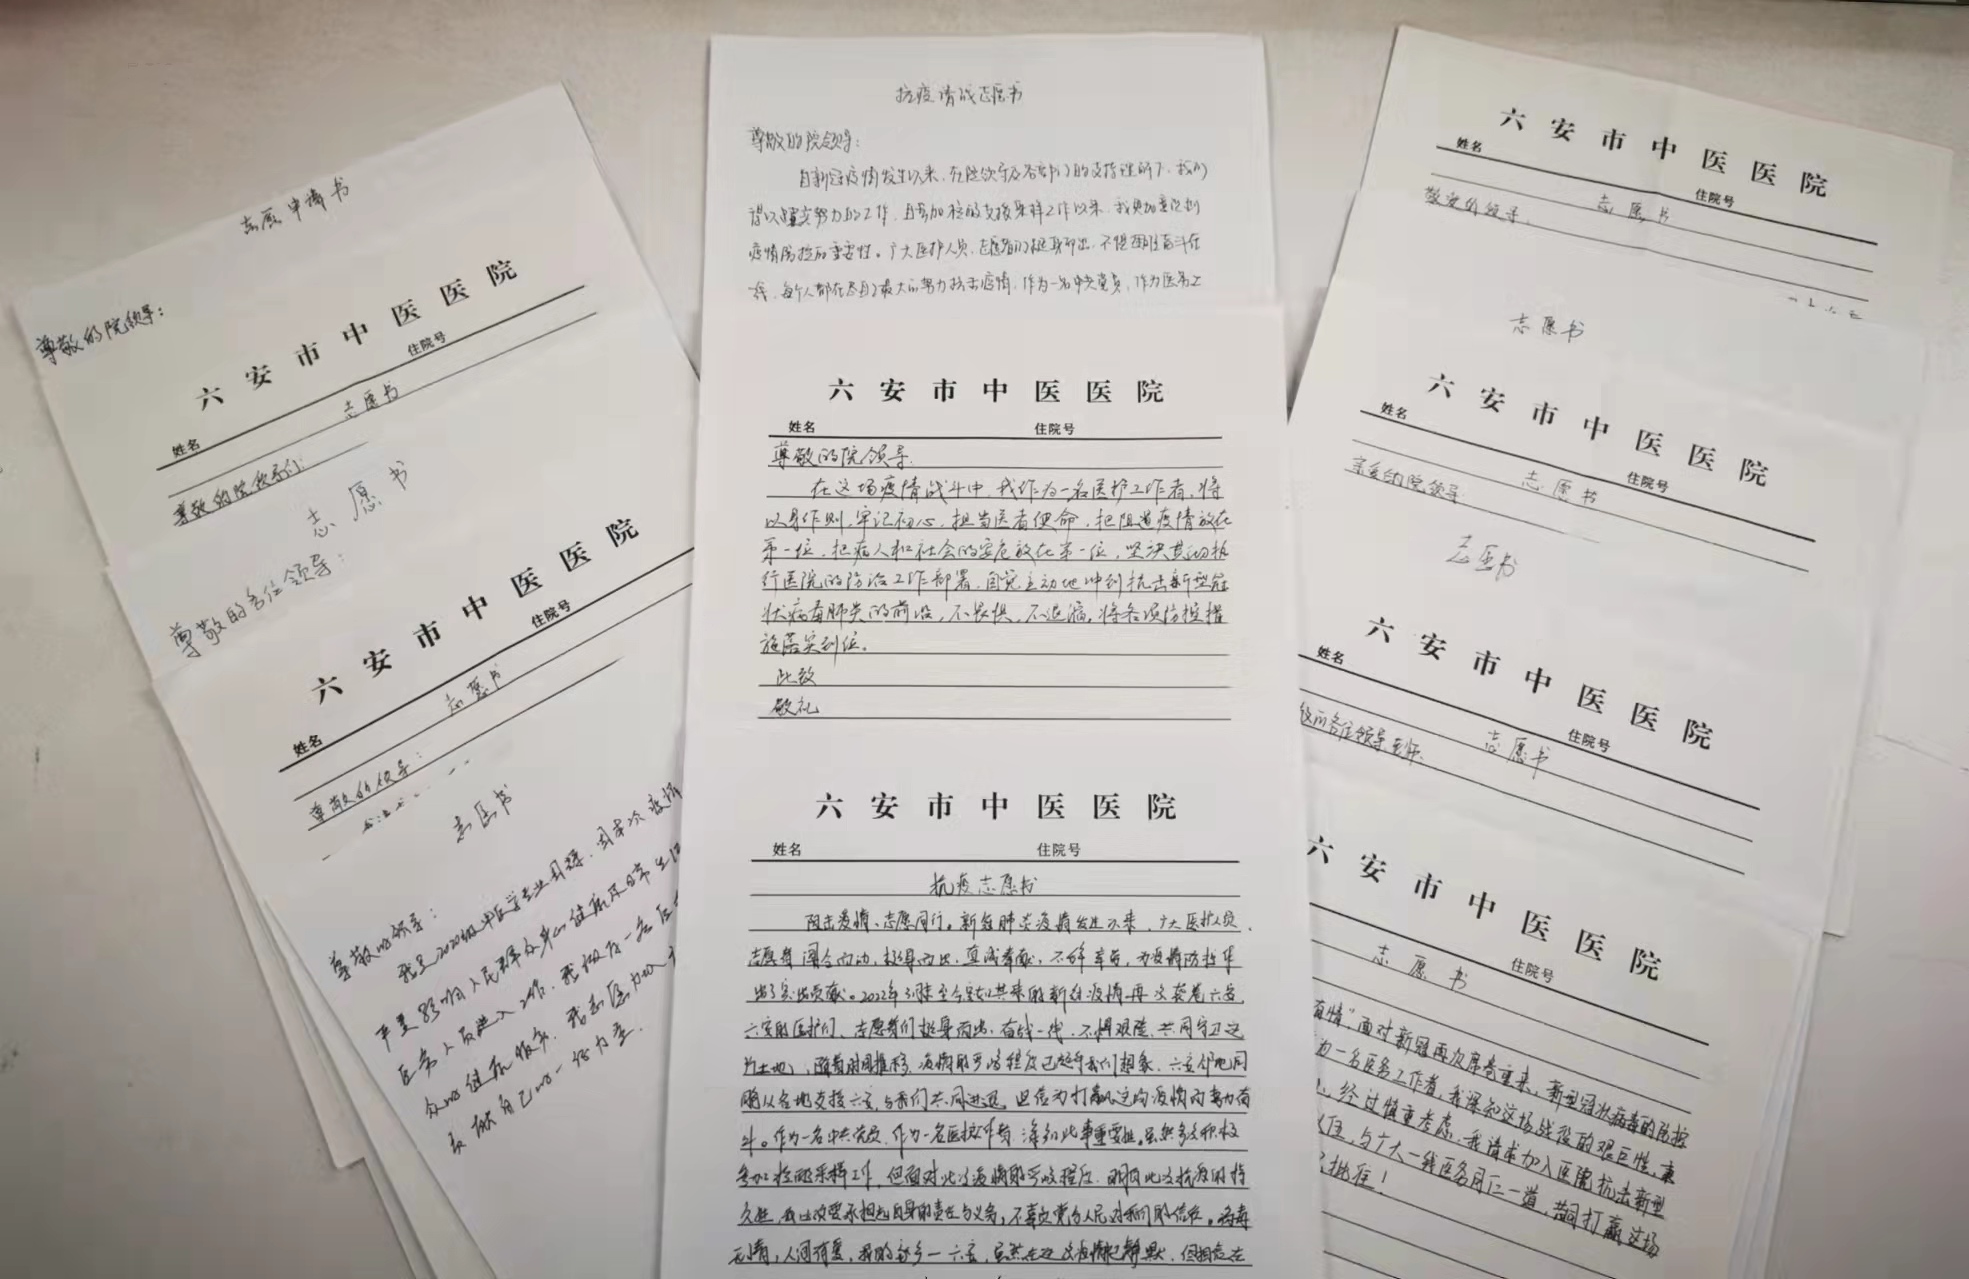 志愿申请书
尊敬的院领导：
六安市中医医院
姓名 住院号
志愿书
尊敬的院领导们：
志愿书
尊敬的各位领导：
六安市中医医院
姓名 住院号
志愿书
尊敬的领导：
志愿书
尊敬的领导：
我是2020级中医学专业
严重影响人民群众身心健康及日常生活
医务人员进入工作，我极为一名医
众的健康服务，我志愿加入
贡献自己的一份力量.
抗疫请战志愿书
尊敬的院领导：
自新冠疫情发生以来，在院领导及各部门的支持理解下，我们
得以踏实努力的工作，自参加核酸支援采样工作以来，我更加意识到
疫情防控的重要性。广大医护人员、志愿者们挺身而出，不惧困难奋斗在
每个人都在尽自己最大的努力抗击疫情，作为一名中共党员，作为医务工
六安市中医医院
姓名 住院号
尊敬的院领导：
在这场疫情战斗中，我作为一名医护工作者，将
以身作则，牢记初心，担当医者使命，把阻遏疫情放在
第一位，把病人和社会的安危放在第一位，坚决贯彻执
行医院的防治工作部署，自觉主动地冲到抗击新型冠
状病毒肺炎的前沿，不畏惧，不退缩，将各项防控措
施落实到位。
此致
敬礼
六安市中医医院
姓名 住院号
抗疫志愿书
阻击疫情、志愿同行。新冠肺炎疫情发生以来，广大医护人员、
志愿者闻令而动，挺身而出，真诚奉献，不辞辛苦，为疫情防控作
出了突出贡献。2022年 突如其来的新冠疫情再次袭卷六安，
六安的医护们、志愿者们挺身而出，奋战一线，不惧艰险，共同守卫这
片土地，随着时间推移，疫情的严峻程度已超乎我们想象，六安邻地同
胞从各地支援六安，与我们共同进退，坚信为打赢这场疫情而努力奋
斗。作为一名中共党员，作为一名医护工作者，深知此事重要性。虽然多次积极
参加核酸采样工作，但面对此次疫情的严峻程度，明白此次抗疫的持
久性，我必须要承担起自身的责任与义务，不辜负党与人民对我们的信任。病毒
无情，人间有爱，我的家乡一六安，虽然在这次疫情之静默，但相信在
六安市中医医院
姓名 住院号
志愿书
敬爱的领导：
志愿书
六安市中医医院
姓名 住院号
志愿书
亲爱的院领导：
志愿书
六安市中医医院
姓名 住院号
志愿书
的各位领导 ：
六安市中医医院
住院号
志愿书
有情”，面对新冠再次席卷重来，新型冠状病毒的防控
为一名医务工作者，我深知这场战役的艰巨性，
经过慎重考虑，我请求加入医院抗击新型
，与广大一线医务同仁一道，共同打赢这场
批准！